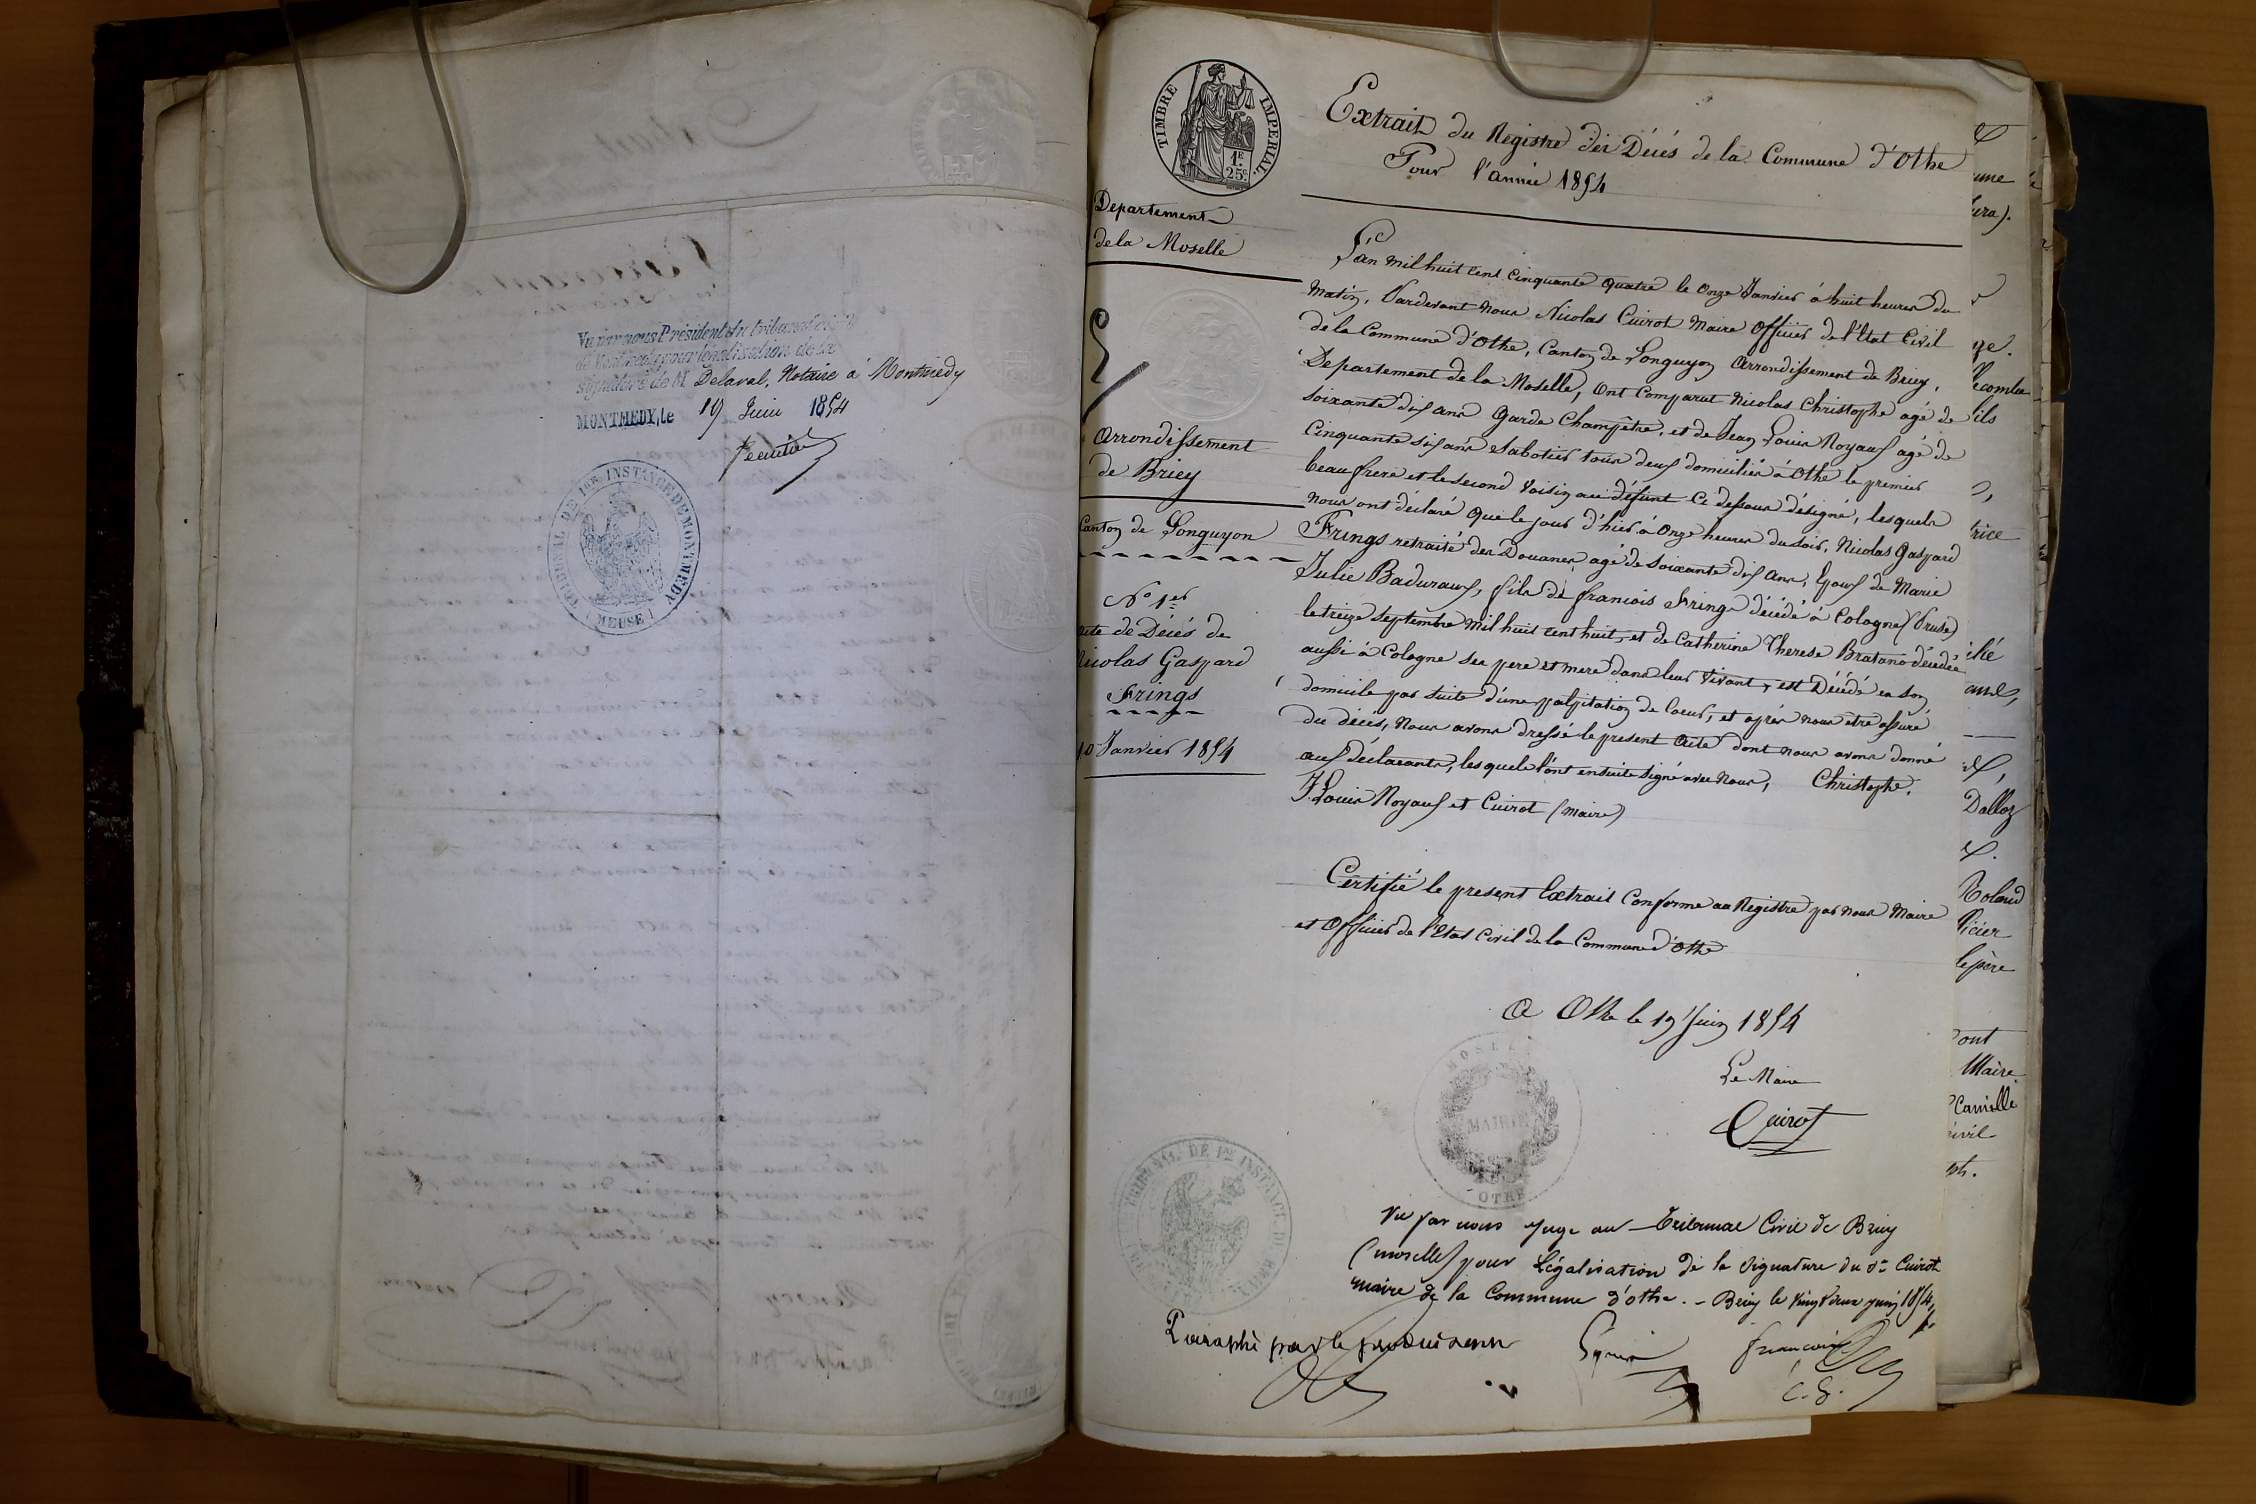 Vu par nous Président du tribunal civil
de Montmedy pour légalisation de la
signature de M Delaval, Notaire à Montmédy
MONTMEDY, le 19 Juin 1854
TRIBUNAL DE 1ER INSTANCE DE MONTMEDY
(MEUSE)
TIMBRE IMPERIAL
1F
25c
Extrait du Registre des Décés de la Commune d'Othe
Pour l'année 1854
Departement
de la Moselle
Arrondissement
de Briey
Canton de Longuyon
No 1er
acte de Décés de
Nicolas Gaspard
Frings
10 Janvier 1854
L'an mil huit cent cinquante quatre le onze Janvier à huit heures du
matin, Pardevant nous Nicolas Cuirot Maire Officier de l'Etat Civil
de la Commune d'Othe, Canton de Longuyon Arrondissement de Briey,
Departement de la Moselle, ont comparut Nicolas Christophe agé de
soixante dix ans Garde Champêtre, et de Jean Louis Noyaux agé de
cinquante six ans Sabotier tous deux domiciliés à Othe le premier
beau frere et le second voisin au défunt ci dessous désigné, lesquels
nous ont déclaré que le jour d'hier à onze heures du soir, Nicolas Gaspard
Frings retraité des Douanes, agé de soixante dix ans, Epoux de Marie
Julie Baduraux, fils de francois Frings décédé à Cologne (Prusse)
le treize septembre mil huit cent huit, et de Catherine Therese Bratano décédée
aussi à Cologne ses pere et mere dans leur vivant, est Décédé en son
domicile par suite d'une palpitation de coeur, et après nous être assuré
du décés, nous avons dressé le present acte dont nous avons donné
aux déclarants, lesquels l'ont ensuite signé avec nous, Christophe.
J. Louis Noyaux et Cuirot (maire)
Certifié le present Extrait conforme au Registre par nous Maire
et Officier de l'Etat Civil de la Commune d'Othe
A Othe le 19 Juin 1854
Le Maire
Cuirot
MAIRIE
Vu par nous Juge au Tribunal Civil de Briey
(moselle) pour Légalisation de la signature du Sr Cuirot
maire de la Commune d'othe. - Briey le vingt deux juin 1854
Paraphé par le
TRIBUNAL DE 1RE INSTANCE DE BRIEY
une
Jura).
ge.
ils
rice
Dalloz
Roland
ficier
le père
ont
Maire
Camille
civil